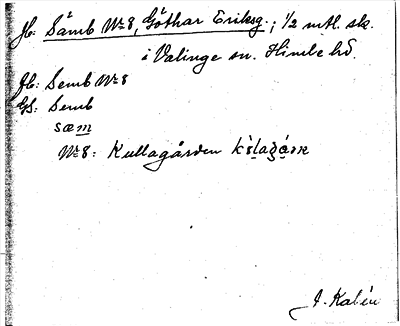 fb: Sämb No 8, Göthar Eriksg.; 1/2 mtl. sk.
i Valinge sn. Himle hd.
Jb: Semb No 8
GS: Semb
sæm
No 8: Kullagården
J. Kalén